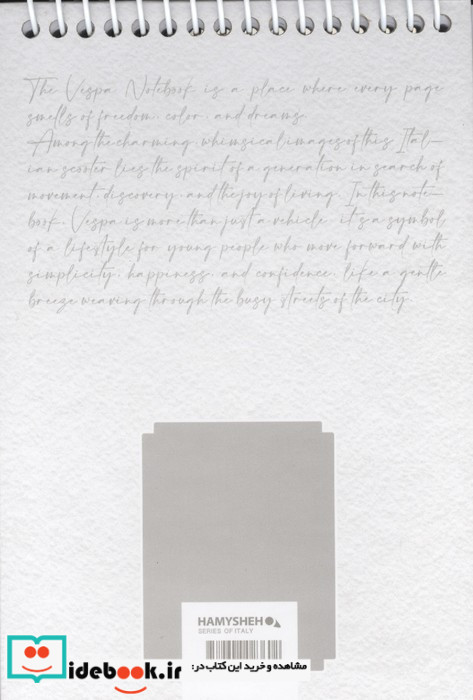 The Vespa Notebook is a place where every page
smells of freedom, color, and dreams.
Among the charming, whimsical images of this Ital-
ian scooter lies the spirit of a generation in search of
movement, discovery, and the joy of living. In this note-
book, Vespa is more than just a vehicle; it's a symbol
of a lifestyle for young people who move forward with
simplicity, happiness, and confidence, like a gentle
breeze weaving through the busy streets of the city.
HAMYSHEH
SERIES OF ITALY
مشاهده و خرید این کتاب در:
idebook.ir